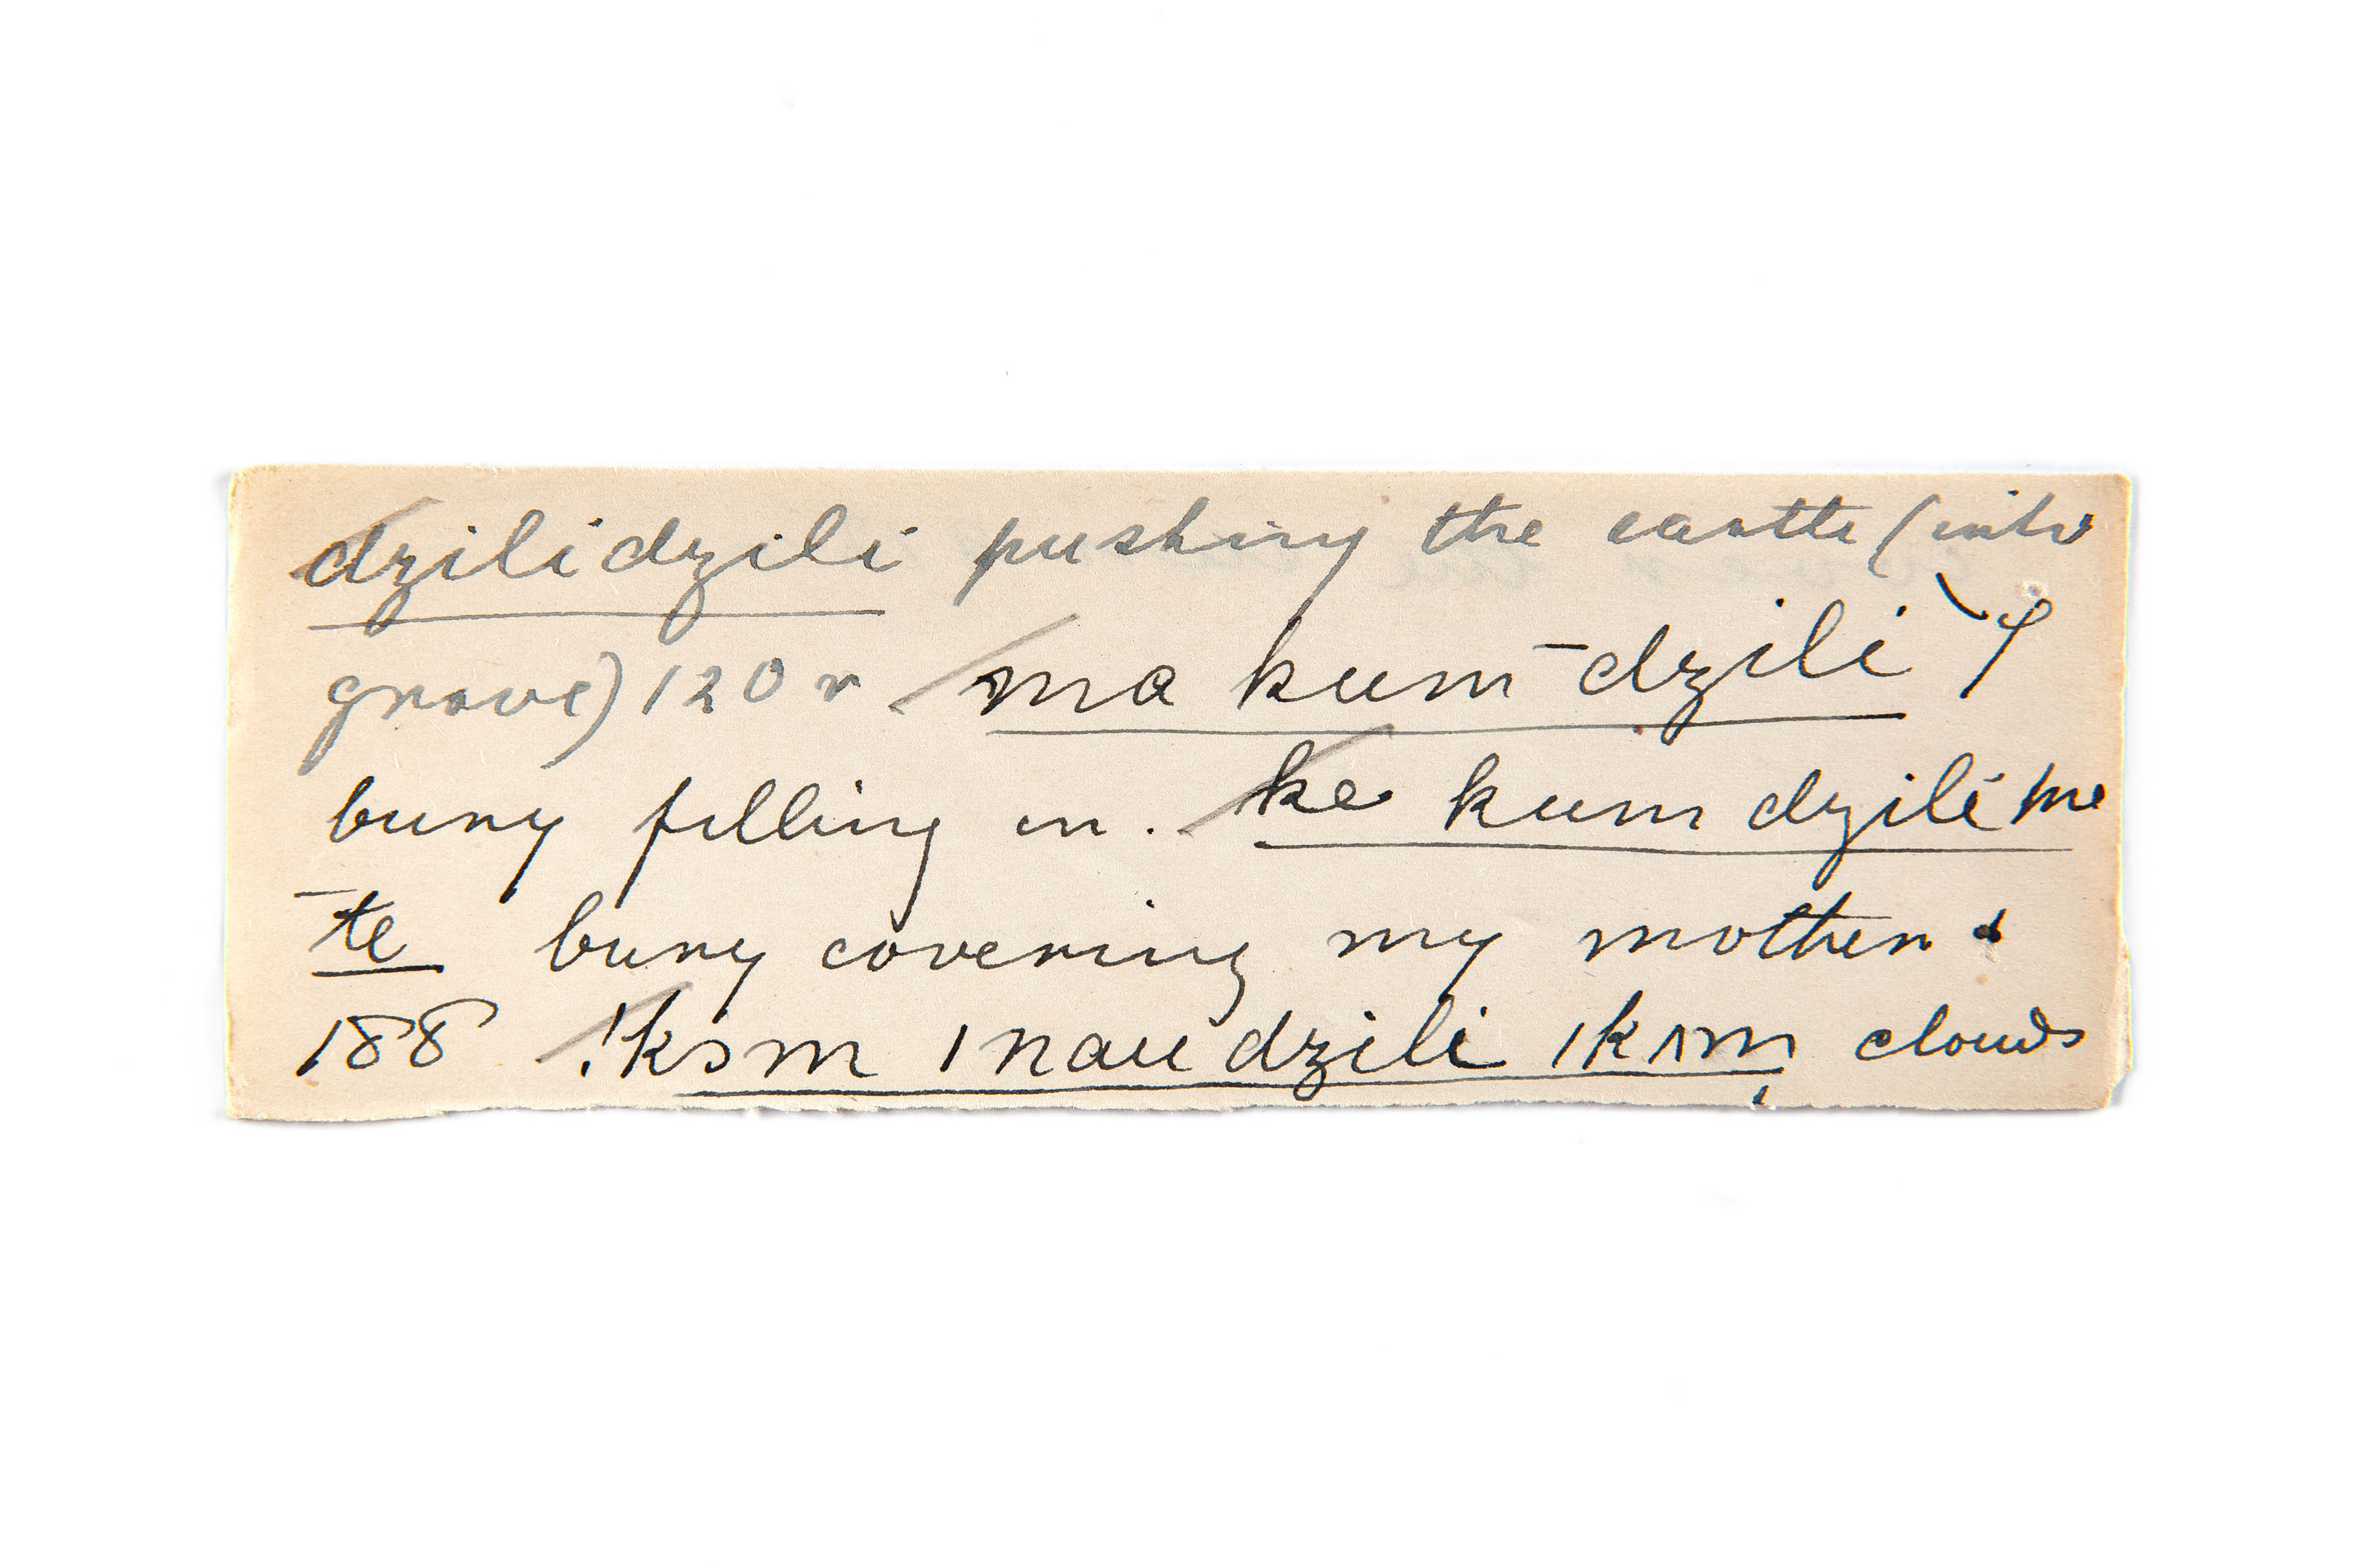 dzilidzili pushing the earth (into
grave) 120 r ma kum-dzili
bury filling in. ke kum dzili me
-te bury covering my mother
188 !ksm ı nau dzili ıkım clouds